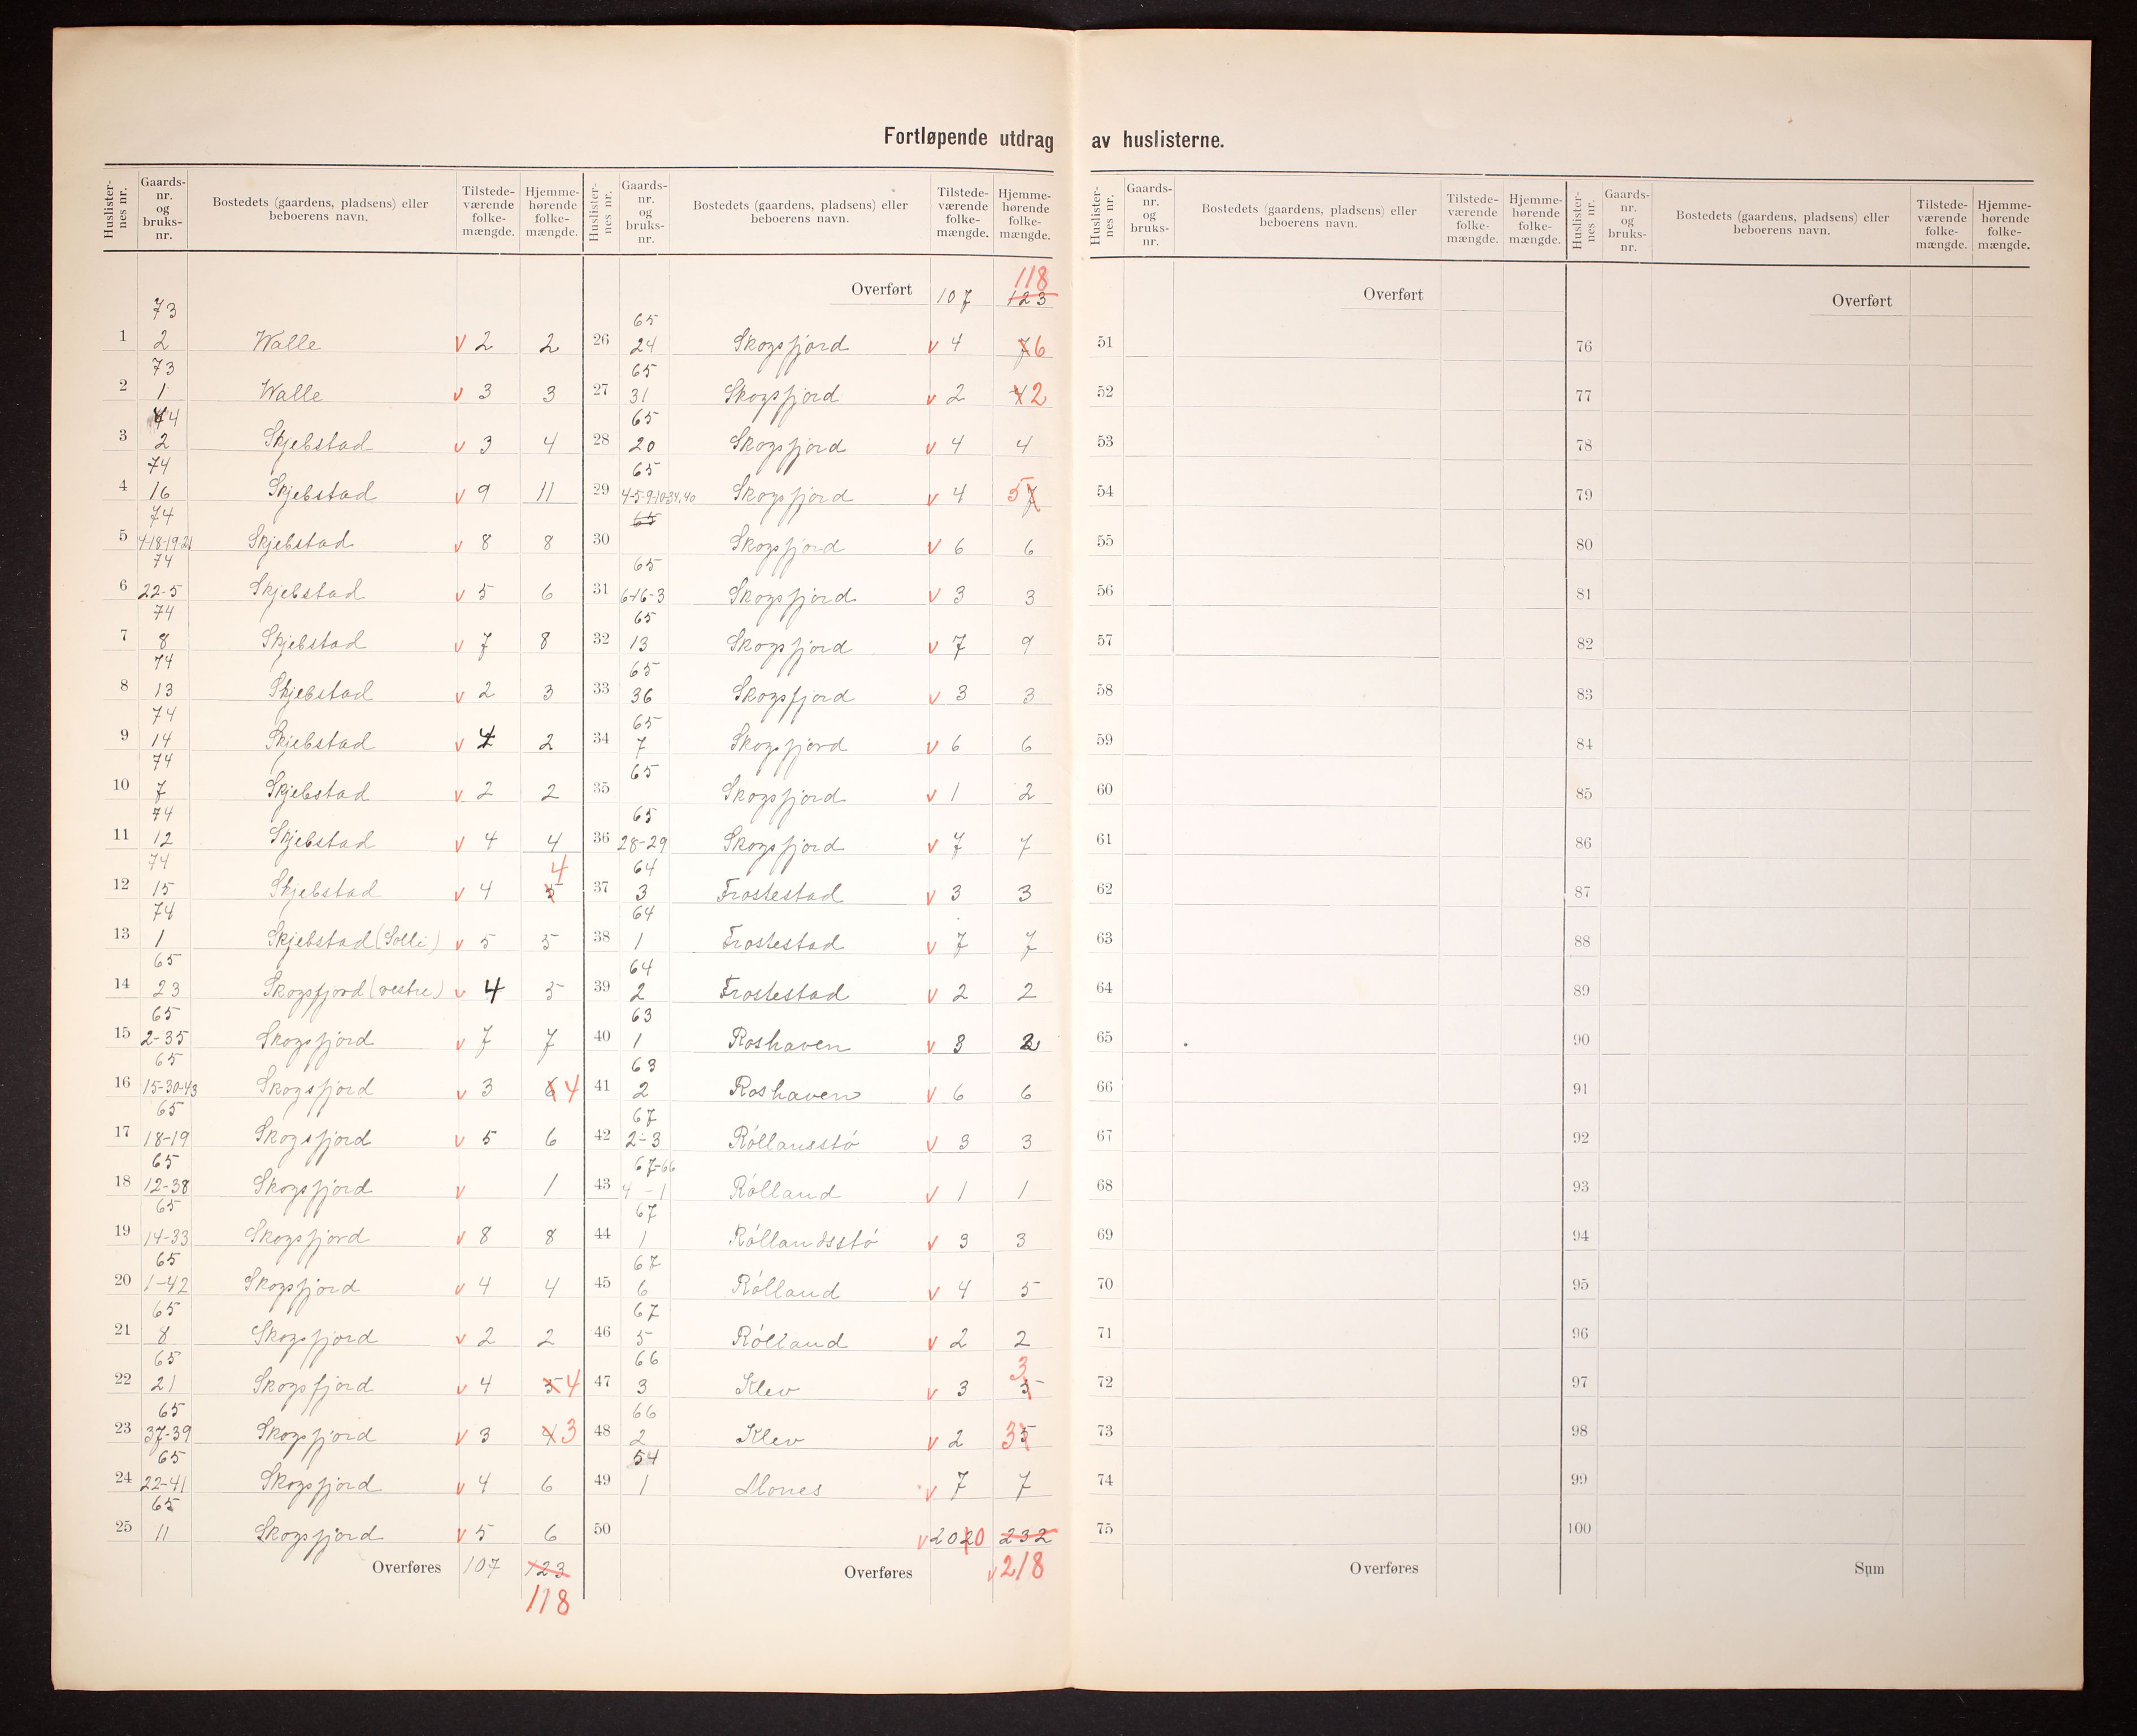 Fortløpende utdrag av huslisterne.
Huslister-nes nr. Gaards-nr. og bruks-nr. Bostedets (gaardens, pladsens) eller beboerens navn. Tilstede-værende folke-mængde. Hjemme-hørende folke-mængde.
1 73 2 Walle v 2 2
2 73 1 Walle v 3 3
3 74 2 Skjebstad v 3 4
4 74 16 Skjebstad v 9 11
5 74 4-18-19-21 Skjebstad v 8 8
6 74 22-5 Skjebstad v 5 6
7 74 8 Skjebstad v 7 8
8 74 13 Skjebstad v 2 3
9 74 14 Skjebstad v 2
10 74 7 Skjebstad v 2 2
11 74 12 Skjebstad v 4 4
12 74 15 Skjebstad v 4 5 4
13 74 1 Skjebstad (Solli) v 5 5
14 65 23 Skogsfjord (vestre) v 4 5
15 65 2-35 Skogsfjord v 7 7
16 65 15-30-43 Skogsfjord v 3 6 4
17 65 18-19 Skogsfjord v 5 6
18 65 12-38 Skogsfjord v 1
19 65 14-33 Skogsfjord v 8 8
20 65 1-42 Skogsfjord v 4 4
21 65 8 Skogsfjord v 2 2
22 65 21 Skogsfjord v 4 5 4
23 65 37-39 Skogsfjord v 3 4 3
24 65 22-41 Skogsfjord v 4 6
25 65 11 Skogsfjord v 5 6
Overføres 107 123
118
Huslister-nes nr. Gaards-nr. og bruks-nr. Bostedets (gaardens, pladsens) eller beboerens navn. Tilstede-værende folke-mængde. Hjemme-hørende folke-mængde.
118
Overført 107 123
26 65 24 Skogsfjord v 4 7 6
27 65 31 Skogsfjord v 2 4 2
28 65 20 Skogsfjord v 4 4
29 65 4-5-9-10-34.40 Skogsfjord v 4 5 7
30 65 Skogsfjord v 6 6
31 65 6-16-3 Skogsfjord v 3 3
32 65 13 Skogsfjord v 7 9
33 65 36 Skogsfjord v 3 3
34 65 7 Skogsfjord v 6 6
35 65 Skogsfjord v 1 2
36 65 28-29 Skogsfjord v 7 7
37 64 3 Frostestad v 3 3
38 64 1 Frostestad v 7 7
39 64 2 Frostestad v 2 2
40 63 1 Roshaven v 3 2
41 63 2 Roshaven v 6 6
42 67 2-3 Róllansstó v 3 3
43 67-66 4-1 Rólland v 1 1
44 67 1 Róllandsstó v 3 3
45 67 6 Rólland v 4 5
46 67 5 Rólland v 2 2
47 66 3 Klev v 3 5 3
48 66 2 Klev v 2 3 5
49 54 1 Mones v 7 7
50 v 2020 232
Overføres v 218
Huslister-nes nr. Gaards-nr. og bruks-nr. Bostedets (gaardens, pladsens) eller beboerens navn. Tilstede-værende folke-mængde. Hjemme-hørende folke-mængde.
Overført
51
52
53
54
55
56
57
58
59
60
61
62
63
64
65
66
67
68
69
70
71
72
73
74
75
Overføres
Huslister-nes nr. Gaards-nr. og bruks-nr. Bostedets (gaardens, pladsens) eller beboerens navn. Tilstede-værende folke-mængde. Hjemme-hørende folke-mængde.
Overført
76
77
78
79
80
81
82
83
84
85
86
87
88
89
90
91
92
93
94
95
96
97
98
99
100
Sum